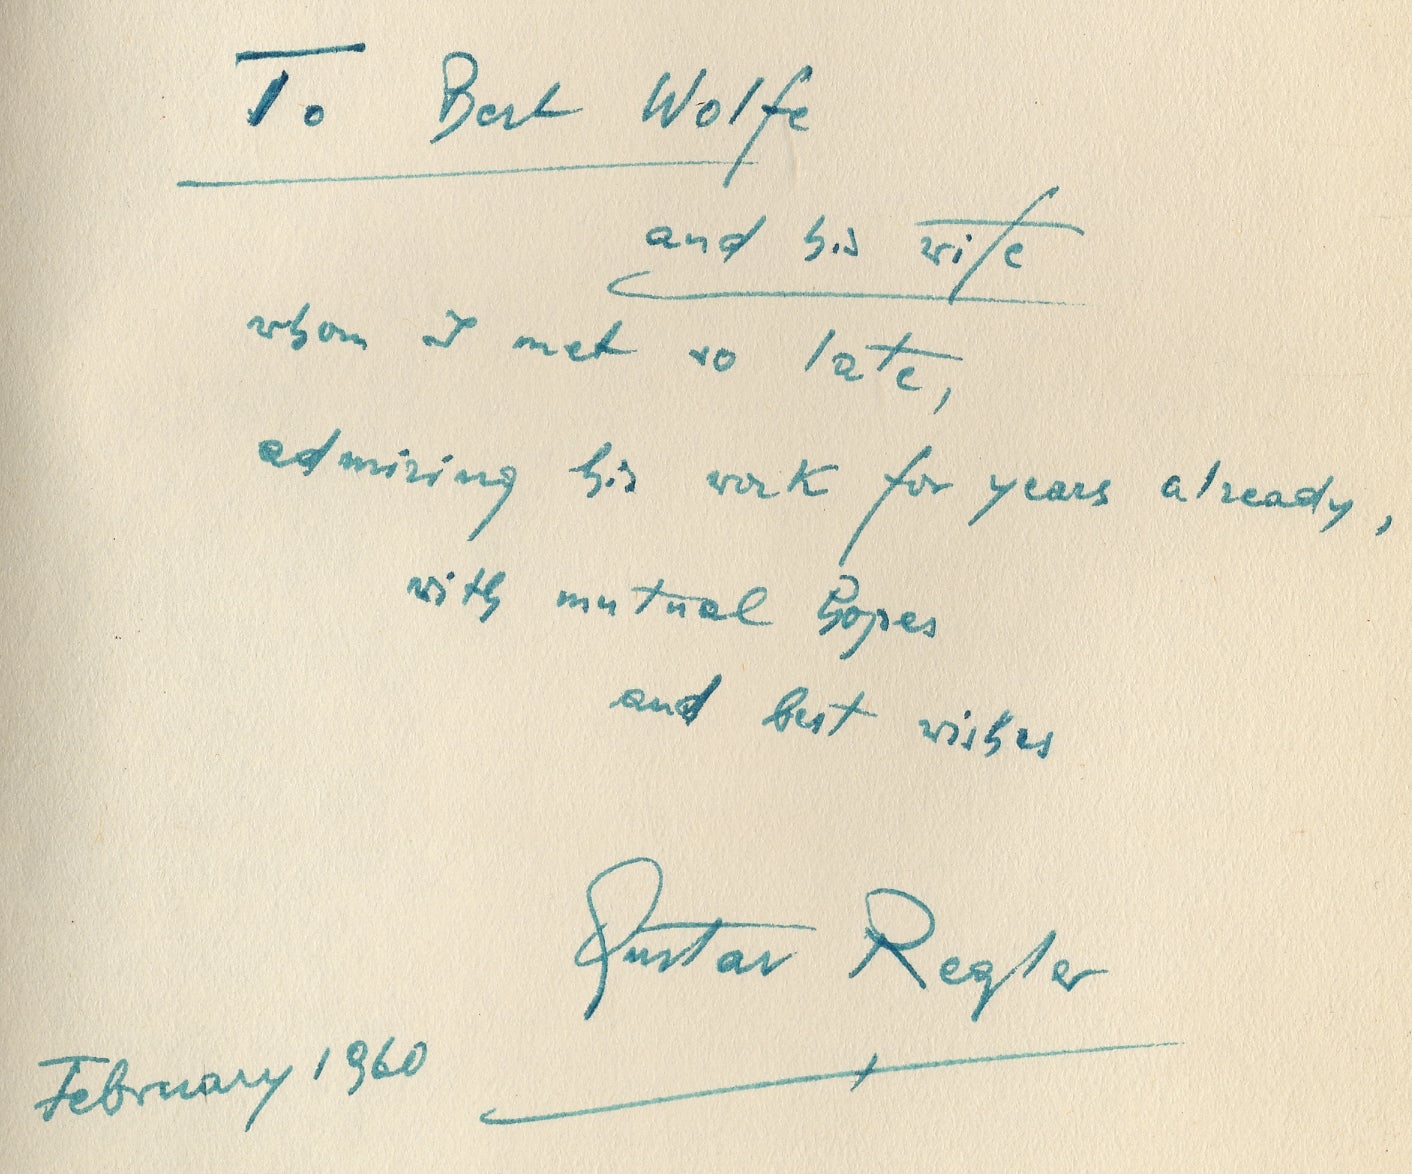 To Bert Wolfe
and his wife
whom I met so late,
admiring his work for years already,
with mutual hopes
and best wishes
Gustav Regler
February 1960